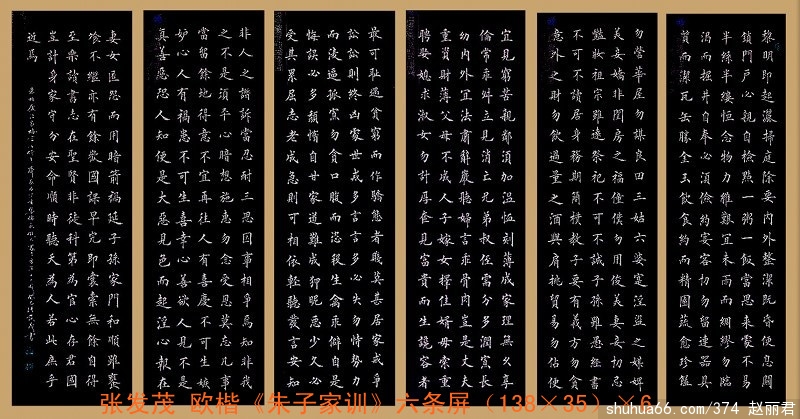 黎明即起灑掃庭除要内外整潔既昏便息關
鎖門户必親自檢點一粥一飯當思来處不易
半絲半縷恒念物力維艱宜未雨而綢繆勿臨
渴而掘井自奉必須儉約宴客切勿留連器具
質而潔瓦缶勝金玉飲食約而精園蔬愈珍饈
勿營華屋勿謀良田三姑六婆寔淫盜之媒婢
美妾嬌非閨房之福僮僕勿用俊美妻妾切忌
豔妝祖宗雖遠祭祀不可不誠子孫雖愚經書
不可不讀居身務期簡樸教子要有義方勿貪
意外之財勿飲過量之酒與肩挑貿易勿佔便
宜見窮苦親鄰須加温恤刻薄成家理無久享
倫常乖舛立見消亡兄弟叔侄需分多潤寡長
幼内外宜法肅辭嚴聽婦言乖骨肉豈是丈夫
重資財薄父母不成人子嫁女擇佳婿毋索重
聘娶媳求淑女勿計厚奩見富貴而生諂容者
最可恥遇貧窮而作驕態者賤莫甚居家戒爭
訟訟則終凶處世戒多言言多必失勿恃勢力
而淩逼孤寡勿貪口腹而恣殺生禽乖僻自是
悔誤必多頹惰自甘家道難成狎昵惡少久必
受其累屈志老成急則可相依輕聽發言安知
非人之譖訴當忍耐三思因事相爭焉知非我
之不是須平心暗想施惠勿念受恩莫忘凡事
當留餘地得意不宜再往人有喜慶不可生嫉
妒心人有禍患不可生喜幸心善欲人見不是
真善惡恐人知便是大惡見色而起淫心報在
妻女匿怨而用暗箭禍延子孫家門和順雖饔
飧不繼亦有餘歡國課早完即囊橐無餘自得
至樂讀書志在聖賢非徒科第為官心存君國
豈計身家守分安命順時聽天為人若此庶乎
近焉
张发茂 欧楷《朱子家训》六条屏（138×35）×6
shuhua66.com/374 赵丽君